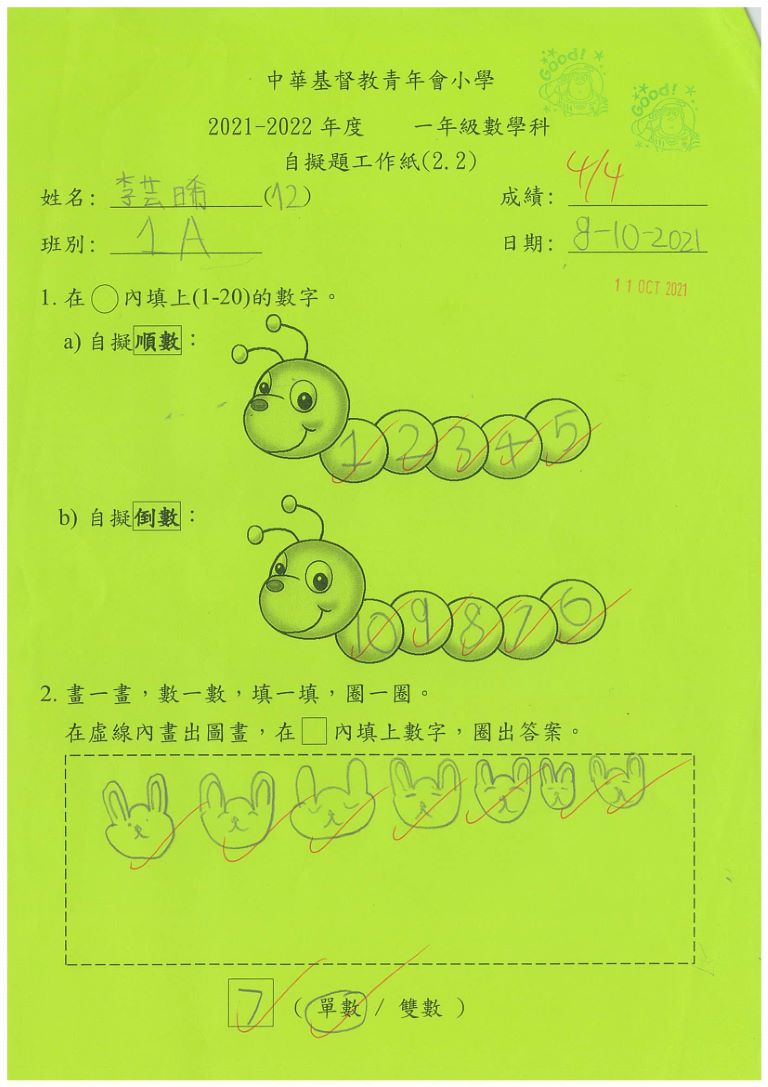 中華基督教青年會小學
Good!
Good!
2021-2022 年度 一年級數學科
自擬題工作紙(2.2)
姓名: 李芸晞 (12) 成績: 4/4
班別: 1A 日期: 8-10-2021
11 OCT 2021
1. 在 ○ 內填上(1-20)的數字。
a) 自擬順數：
1 2 3 4 5
b) 自擬倒數：
10 9 8 7 6
2. 畫一畫，數一數，填一填，圈一圈。
在虛線內畫出圖畫，在 □ 內填上數字，圈出答案。
7 ( 單數 / 雙數 )